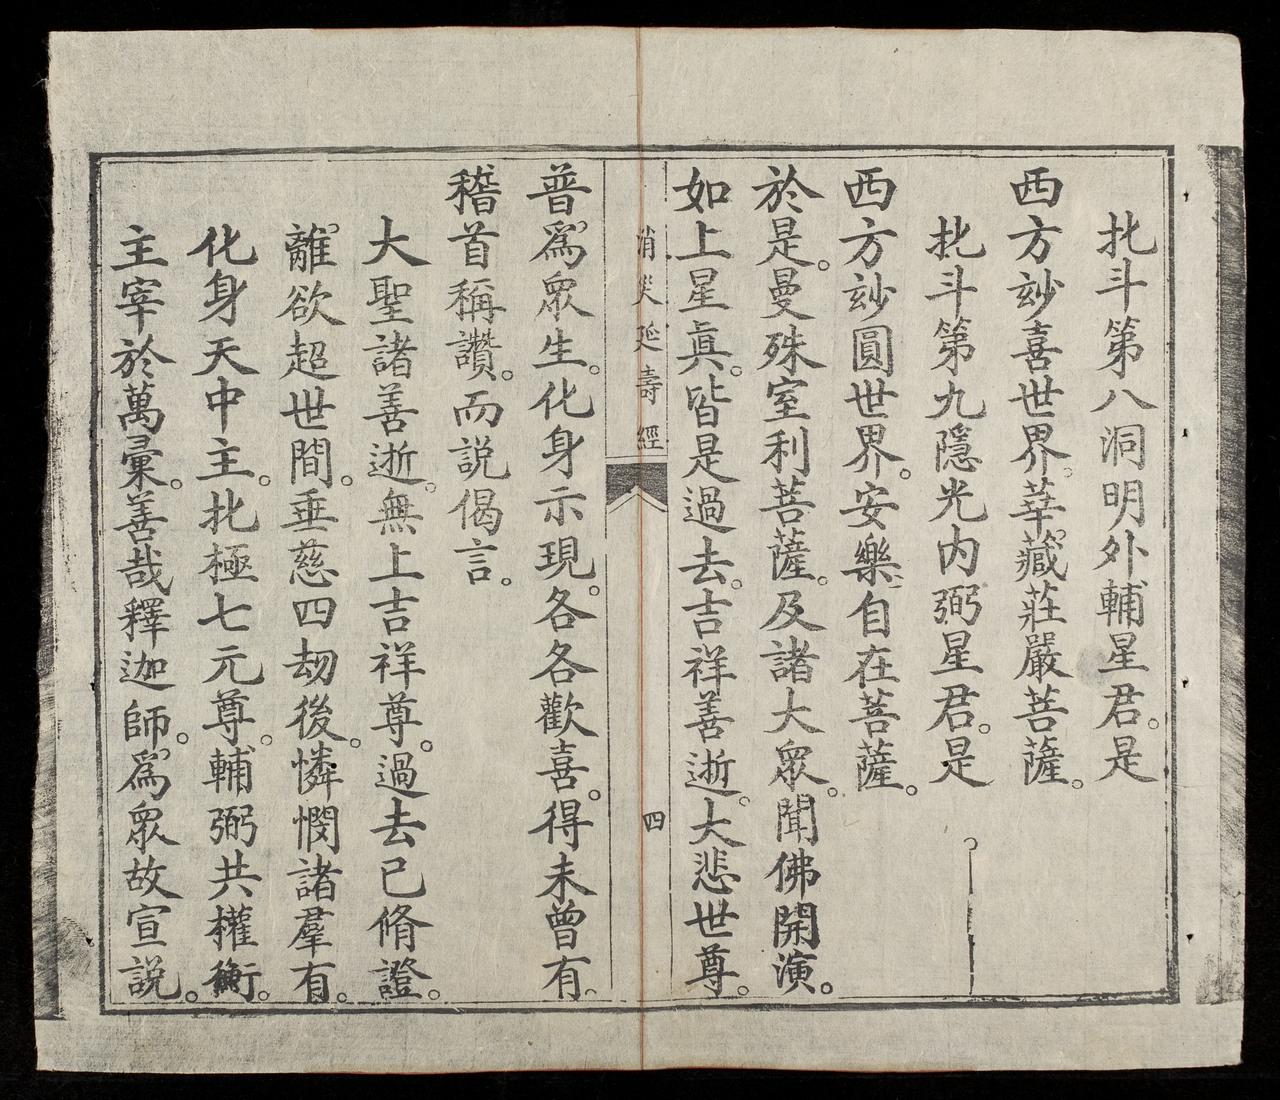 北斗第八洞明外輔星君。是
西方玅喜世界。華藏莊嚴菩薩。
北斗第九隱光内弼星君。是
西方玅圓世界。安樂自在菩薩。
於是。曼殊室利菩薩。及諸大衆。聞佛開演。
如上星眞。皆是過去。吉祥善逝。大悲世尊。
消災延壽經
四
普爲衆生。化身示現。各各歡喜。得未曾有。
稽首稱讚。而說偈言。
大聖諸善逝。無上吉祥尊。過去已脩證。
離欲超世間。垂慈四劫後。憐憫諸羣有。
化身天中主。北極七元尊。輔弼共權衡。
主宰於萬彙。善哉釋迦師。爲衆故宣說。